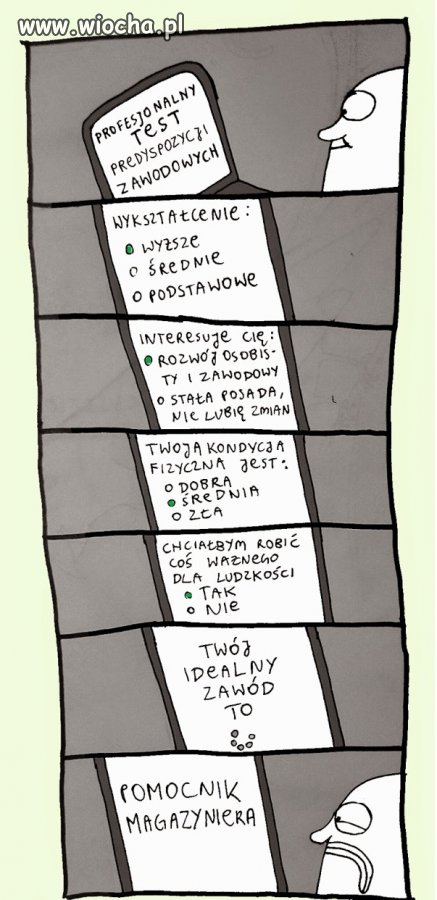 www.wiocha.pl
PROFESJONALNY
TEST
PREDYSPOZYCJI
ZAWODOWYCH
WYKSZTAŁCENIE:
WYŻSZE
ŚREDNIE
PODSTAWOWE
INTERESUJE CIĘ:
ROZWÓJ OSOBIS-
TY I ZAWODOWY
STAŁA POSADA,
NIE LUBIĘ ZMIAN
TWOJA KONDYCJA
FIZYCZNA JEST:
DOBRA
ŚREDNIA
ZŁA
CHCIAŁBYM ROBIĆ
COŚ WAŻNEGO
DLA LUDZKOŚCI
TAK
NIE
TWÓJ
IDEALNY
ZAWÓD
TO
POMOCNIK
MAGAZYNIERA